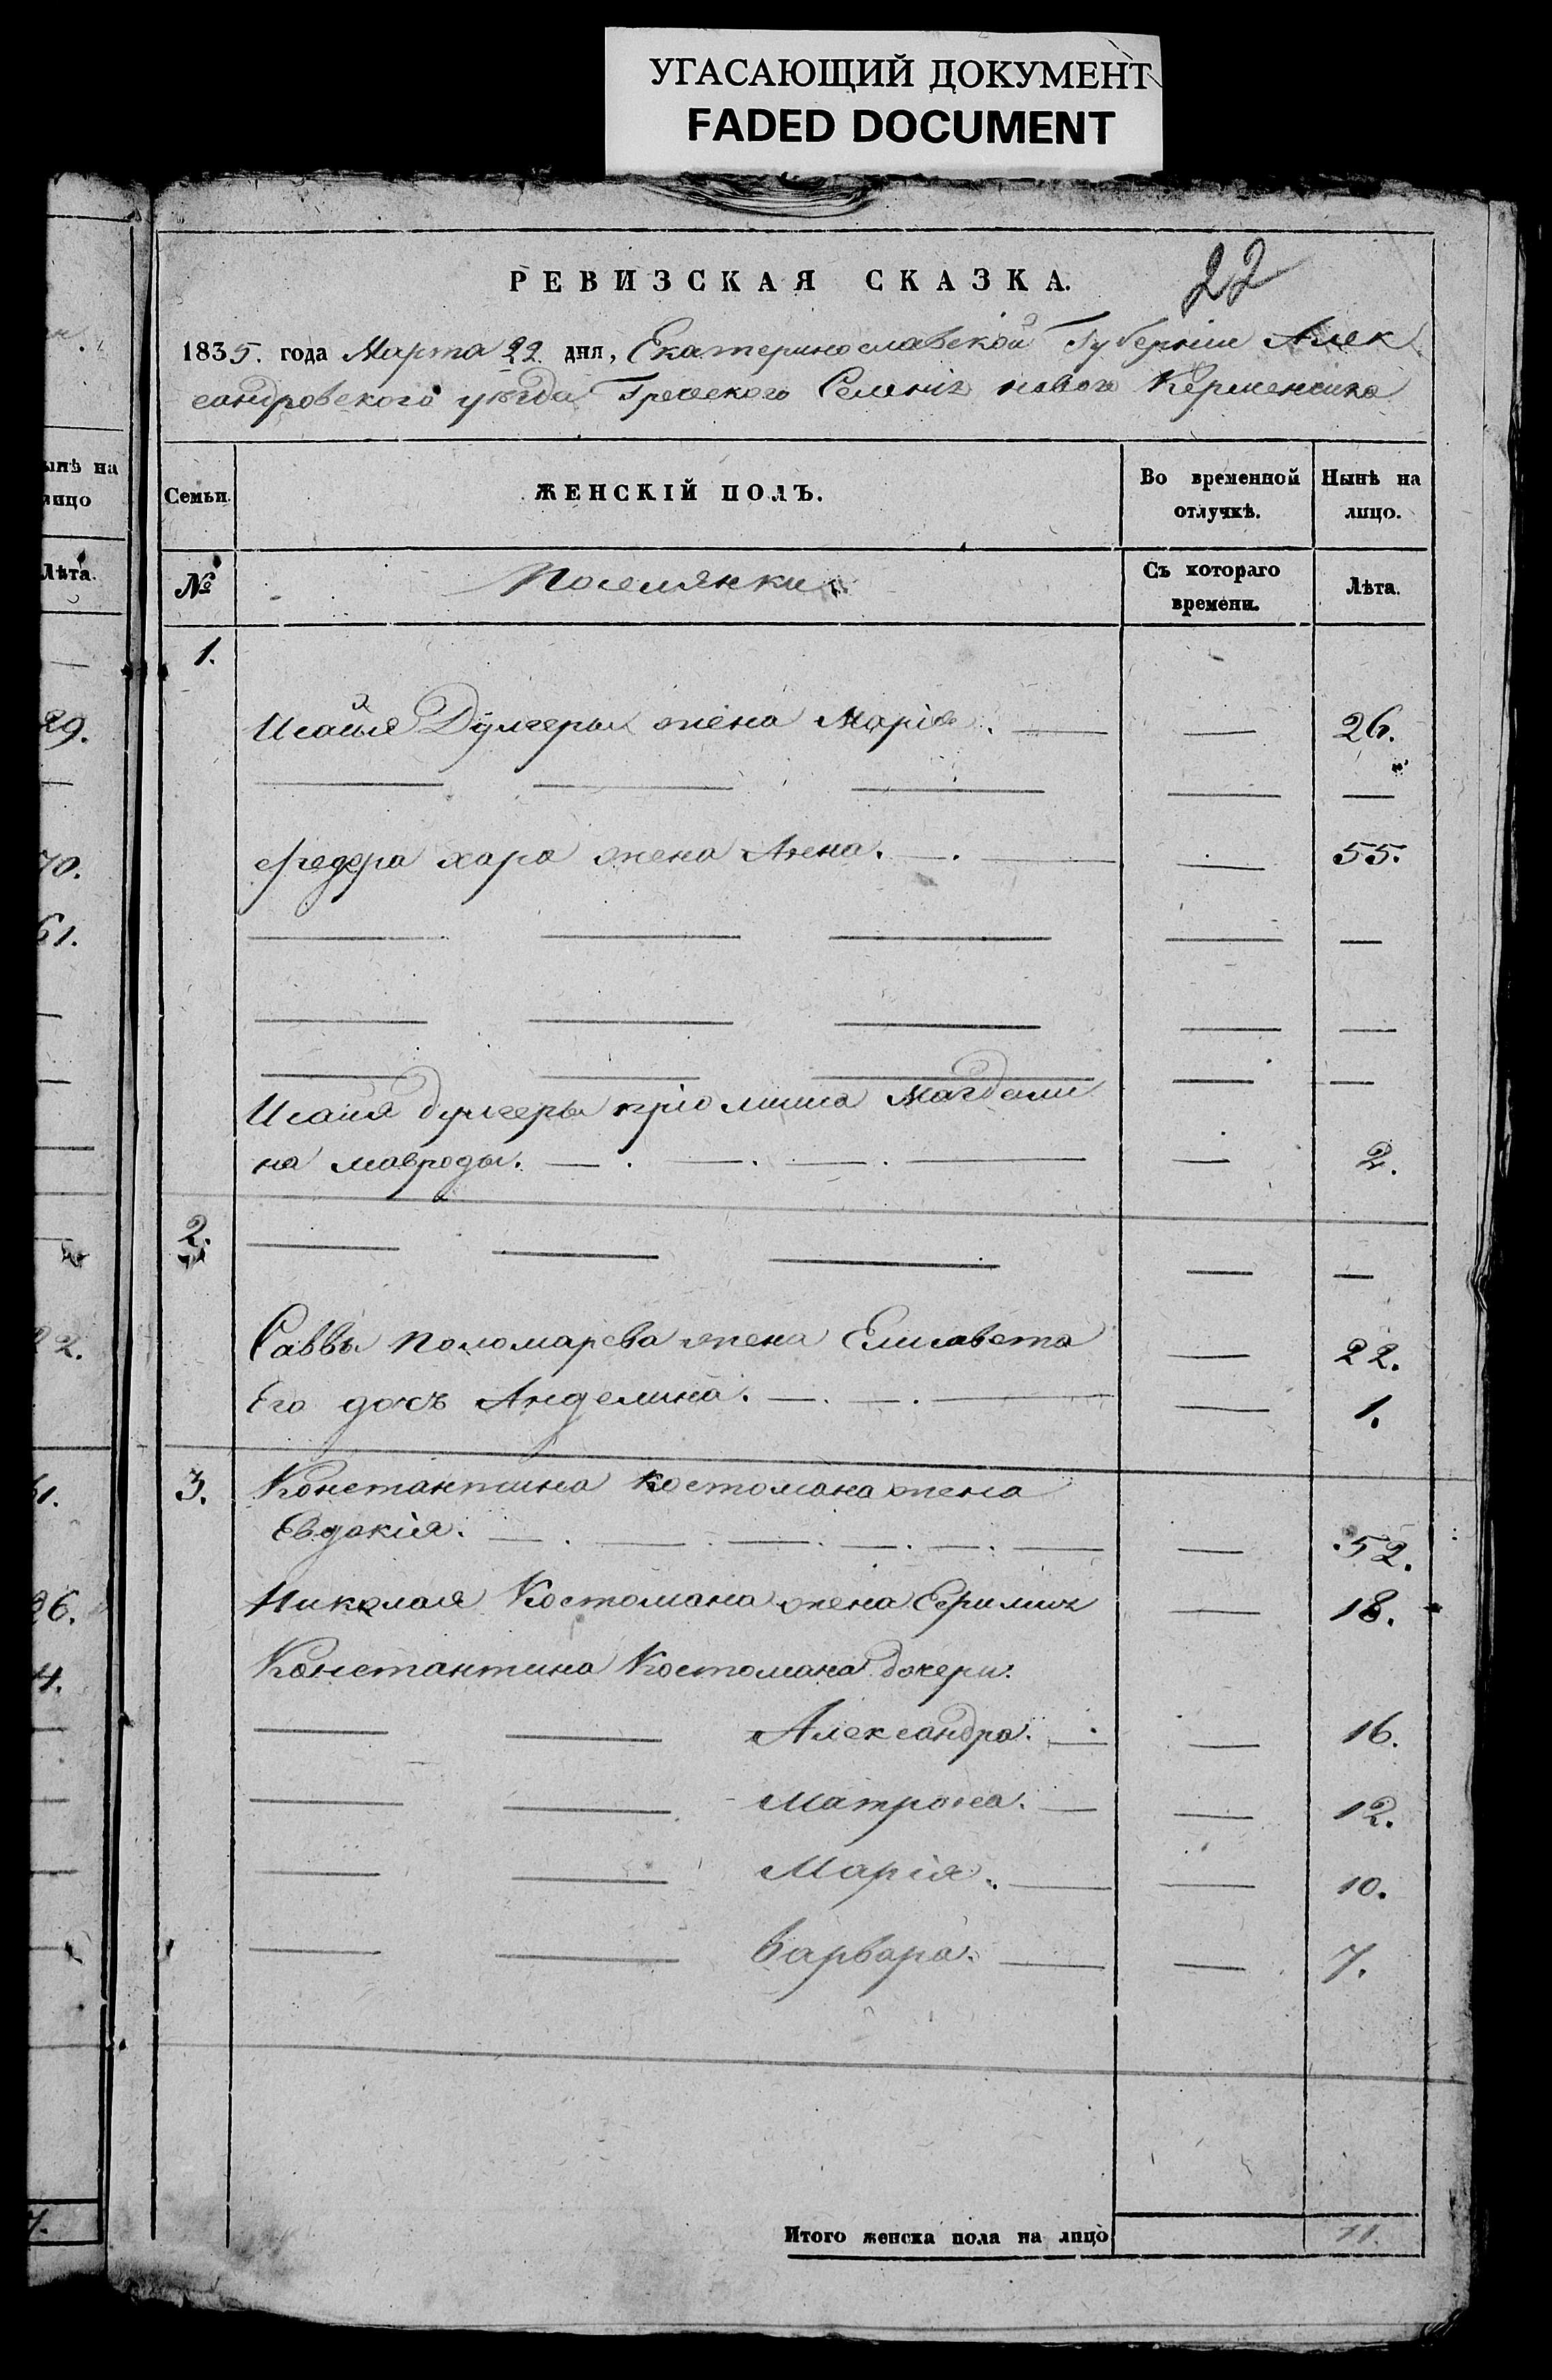 УГАСАЮЩИЙ ДОКУМЕНТ
FADED DOCUMENT
РЕВИЗСКАЯ СКАЗКА.
22
1835. года Марта 22 дня, Екатеринославской Губернiи Алек
сандровского уѣзда Греческого Селенiя нового Керменчика
Семьи.
ЖЕНСКIЙ ПОЛЪ.
Во временной отлучкѣ.
Нынѣ на лицо.
№
Поселянки.
Съ котораго времени.
Лѣта.
1.
Исайя Дулгеры жена Марiя. — — 26.
— — — — —
Ѳедора хара жена Анна. — . — — 55.
— — — — —
— — — — —
— — — — —
Исайя дулгеры прiомыша Магдали
на мавроды. — . — . — . — — 2.
2. — — — — —
Саввы Поломарева жена Елисавета — 22.
Его дочь Анделина. — . — . — — 1.
3. Константина Костомана жена
Евдокiя. — . — — . — . — . — — 52.
Николая Костомана жена — 18.
Константина Костомана дочери.
— — Александра. — — 16.
— — Матрона. — — 12.
— — Марiя. — — 10.
— — Варвара. — — 7.
Итого женска пола на лицо 11.
ынѣ на
лицо
Лѣта.
29.
70.
61.
22.
31.
26.
4.
7.